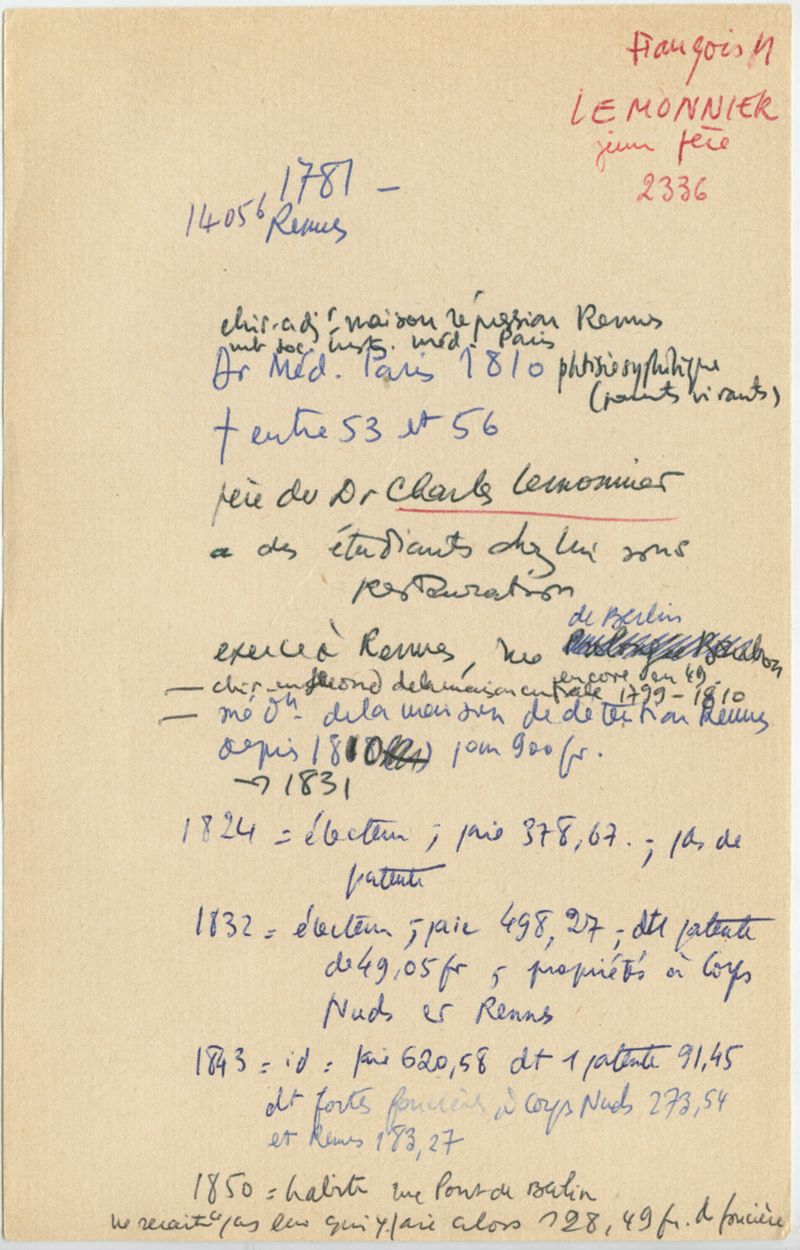 François M
LEMONNIER
père
2336
1781 –
14056 Rennes
chir. adjt maison répression Rennes
mb soc. inst. méd. Paris
Dr Méd. Paris 1810 phtisie syphilitique
(parents vivants)
† entre 53 et 56
père du Dr Charles Lemonnier
a des étudiants chez lui sous
Restauration
de Berlin
exerce à Rennes, rue
encore en 49
– chir. en second de la maison centrale 1799-1810
– méd. de la maison de détention Rennes
depuis 1810 pour 900 fr.
→ 1831
1824 = électeur ; paie 378,67. ; pas de
patente
1832 = électeur ; paie 498,27 ; dt patente
de 49,05 fr ; propriétés à Corps
Nuds et Rennes
1843 = id = paie 620,58 dt 1 patente 91,45
dt fortes foncières, à Corps Nuds 273,54
et Rennes 183,27
1850 = habite rue Pont de Berlin
pas qui paie alors 128,49 fr. de foncière